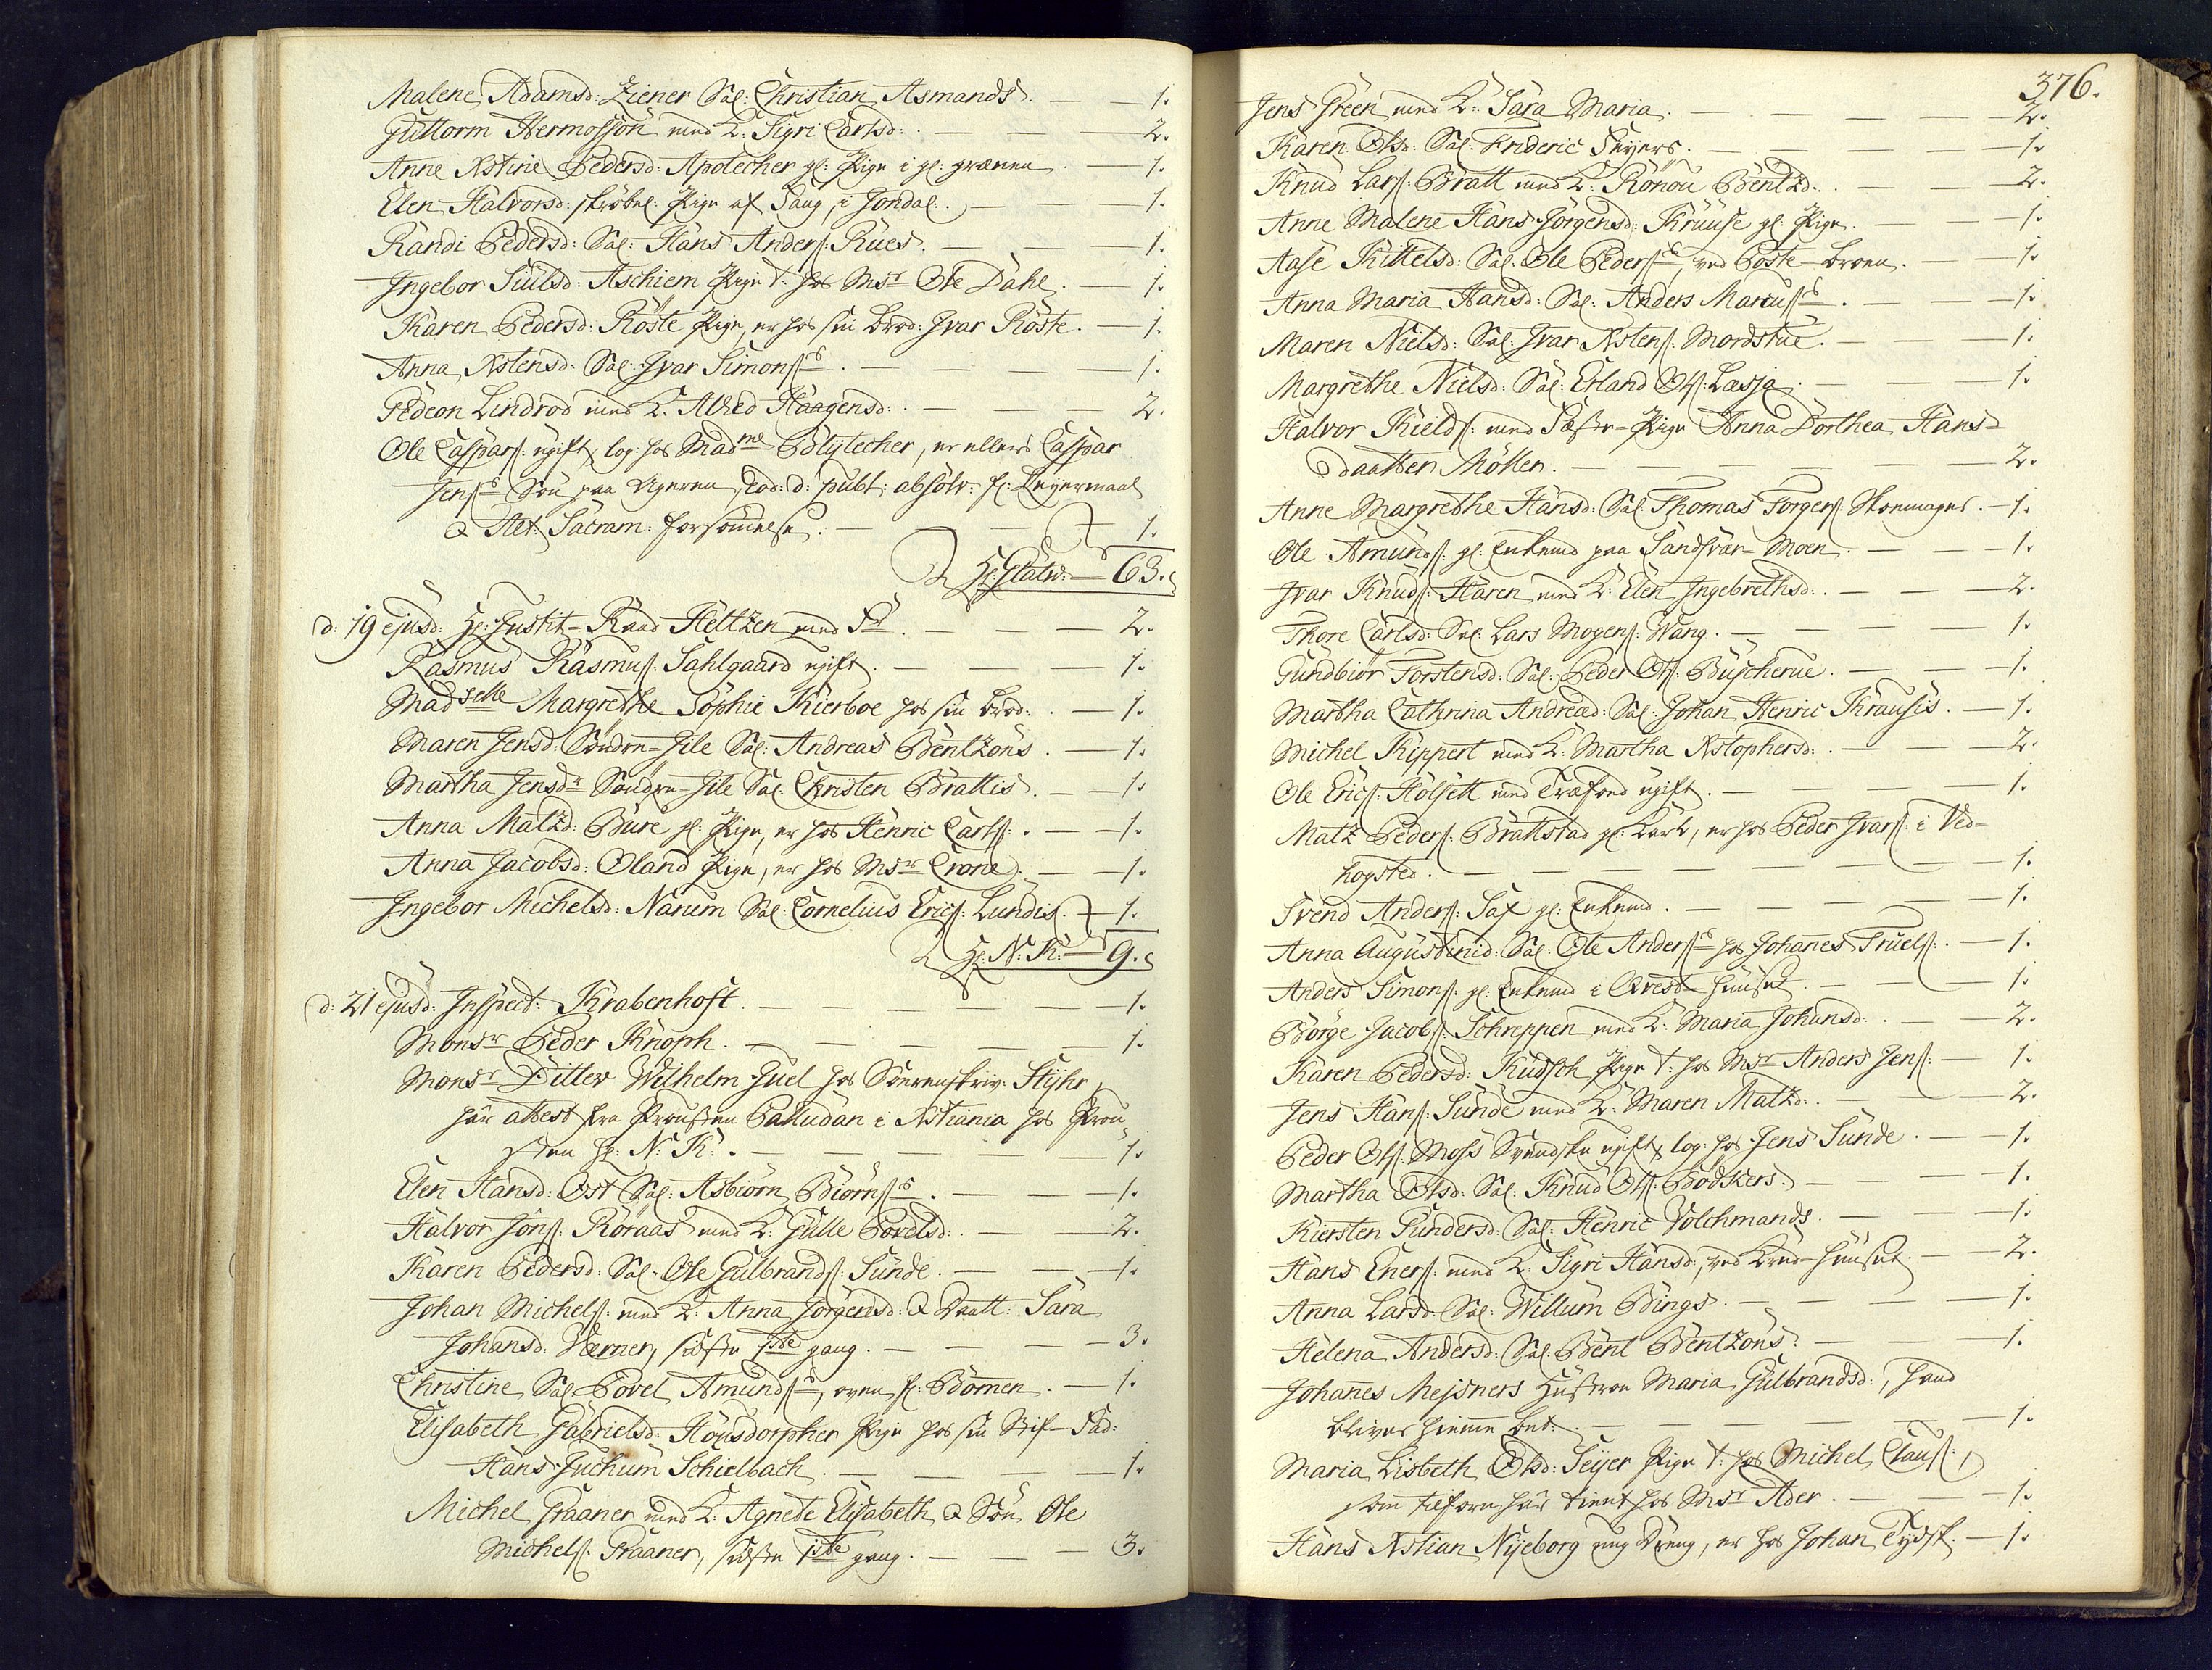 Malene Adamsd: Ziener Sal: Christian Asmands. — — 1.
Guttorm Hermofsön med K: Sigri Carlsd: . — — — 2.
Anne Kstine Pedersd: Apotecher gl: Pige i gl: grænen . — 1.
Elen Halvorsd: skröbel: Pige af Saug, i Jondal. — — 1.
Randi Pedersd: Sal: Hans Anders: Rues. — — — 1.
Ingebor Siulsd: Aschiem Pige t: hos Msr Ole Dahl. — 1.
Karen Pedersd: Röste Pige, er hos sin brod: Ivar Röste. — 1.
Anna Kstensd: Sal: Ivar Simons:s . — — — 1.
Gideon Lindrod med K: Alhed Haagensd: . — — — 2.
Ole Caspars: ugift, log: hos Madme Polytecher, er ellers Caspar
Jens:s Sön paa Ageren, eod: d: publ: absolv: f: Leyermaal
& Alet: Sacram: forsömmelse. — — 1.
H: Statv: — 63.
d: 19 ejusd: H: Justit-Raad Heltzen med Fr . — — — 2.
Rasmus Rasmus: Sahlgaard ugift. — — — 1.
Madselle Margrethe Sophie Kierboe hos sin brod: . — 1.
Maren Jensd: Sönden-Jile Sal: Andreas Bentzons . — 1.
Martha Jensdr Sönden-Jile Sal: Christen Brattis. — — 1.
Anna Matzd: Bure gl: Pige, er hos Henric Carls: . — — 1.
Anna Jacobsd: Öland Pige, er hos Msr Crone. — — 1.
Ingebor Michelsd: Narum Sal: Cornelius Erics: Lundis. — 1.
H: N: K: — 9.
d: 21 ejusd: Inspect: Krabenhoft. — — — — 1.
Monsr Peder Knoph. — — — — 1.
Monsr Ditlev Wilhelm Juel hos Sorenskriv: Styhr,
har attest fra Provsten Palludan i Kstiania hos Prov-
sten H: N: K: . — — — — 1.
Elen Hansd: Ost Sal: Asbiörn Biörns:s . — — — 1.
Halvor Jöns: Röraas med K: Gulle Povelsd: . — — 2.
Karen Pedersd: Sal: Ole Gulbrands: Sunde. — — — 1.
Johan Michels: med K: Anna Jörgensd: & Daatt: Sara
Johansd: Værner, sidste 1ste gang. — — — 3.
Christine Sal: Povel Amunds:s, oven f: Bommen. — 1.
Elisabeth Gabrielsd: Housdorpher Pige hos sin Stif-Fad:
Hans Juchum Schielbach. — — — — 1.
Michel Graaner med K: Agnete Elisabeth & Sön Ole
Michels: Graaner, sidste 1ste gang. — — — 3.
376.
Jens Green med K: Sara Maria. — — — — 2.
Karen Olsd: Sal: Frideric Seyers. — — — — 1.
Knud Lars: Bratt med K: Rönou Bentzd: . — — — 2.
Anne Malene Hans Jörgensd: Kruuse gl: Pige. — — — 1.
Aase Kittelsd: Sal: Ole Peders:s, ved Poste-broen. — — 1.
Anna Maria Hansd: Sal: Anders Marcus:s . — — — 1.
Maren Nielsd: Sal: Ivar Kstens: Mordstue. — — — 1.
Margrethe Nielsd: Sal: Erland Ols: Læsja. — — — 1.
Halvor Kields: med Fæste-Pige Anna Dorthea Hans-
daatter Möller. — — — — 2.
Anne Margrethe Hansd: Sal: Thomas Torgers: Skomagers. — 1.
Ole Amunds: gl: Enkemd paa Sandsvær-Moen. — — — 1.
Ivar Knuds: Haren med K: Elen Ingebrethsd: . — — 2.
Thore Carlsd: Sal: Lars Mogens: Wang. — — — 1.
Gundbiör Torstensd: Sal: Peder Ols: Buscherue. — — — 1.
Martha Cathrina Andreæd: Sal: Johan Henric Krausis. — 1.
Michel Kippert med K: Martha Kstophersd: . — — — 2.
Ole Erics: Hölsett med Træfoed ugift. — — — — 1.
Matz Peders: Brattstad gl: Karl, er hos Peder Ivars: i Ved-
hogsted. — — — — — 1.
Svend Anders: Sax gl: Enkemd. — — — — 1.
Anna Augustinid: Sal: Ole Anders:s hos Johanes Truels: . — 1.
Anders Simons: gl: Enkemd i Qvest-huuset. — — — 1.
Börge Jacobs: Schreppen med K: Maria Johansd: . — — 2.
Karen Pedersd: Kudsch Pige t: hos Msr Anders Jens: — 1.
Jens Hans: Sunde med K: Maren Matzd: . — — — 2.
Peder Ols: Moss Svendske ugift, log: hos Jens Sunde. — 1.
Martha Olsd: Sal: Knud Ols: Bödkers. — — — 1.
Kiersten Gundersd: Sal: Henric Volchmands. — — — 1.
Hans Eners: med K: Sigri Hansd:, ved Brud-huuset. — 2.
Anna Larsd: Sal: Willum Bings. — — — — 1.
Helena Andersd: Sal: Bent Bentzons. — — — 1.
Johanes Mejsners Hustroe Maria Gulbrandsd:, hand
bliver hieme bet: . — — — — 1.
Maria Lisbeth Olsd: Seijer Pige t: hos Michel Claus:,
som tilforn har tient hos Msr Ader. — — — 1.
Hans Kstian Nyeborg ung Dreng, er hos Johan Tydsk. — 1.